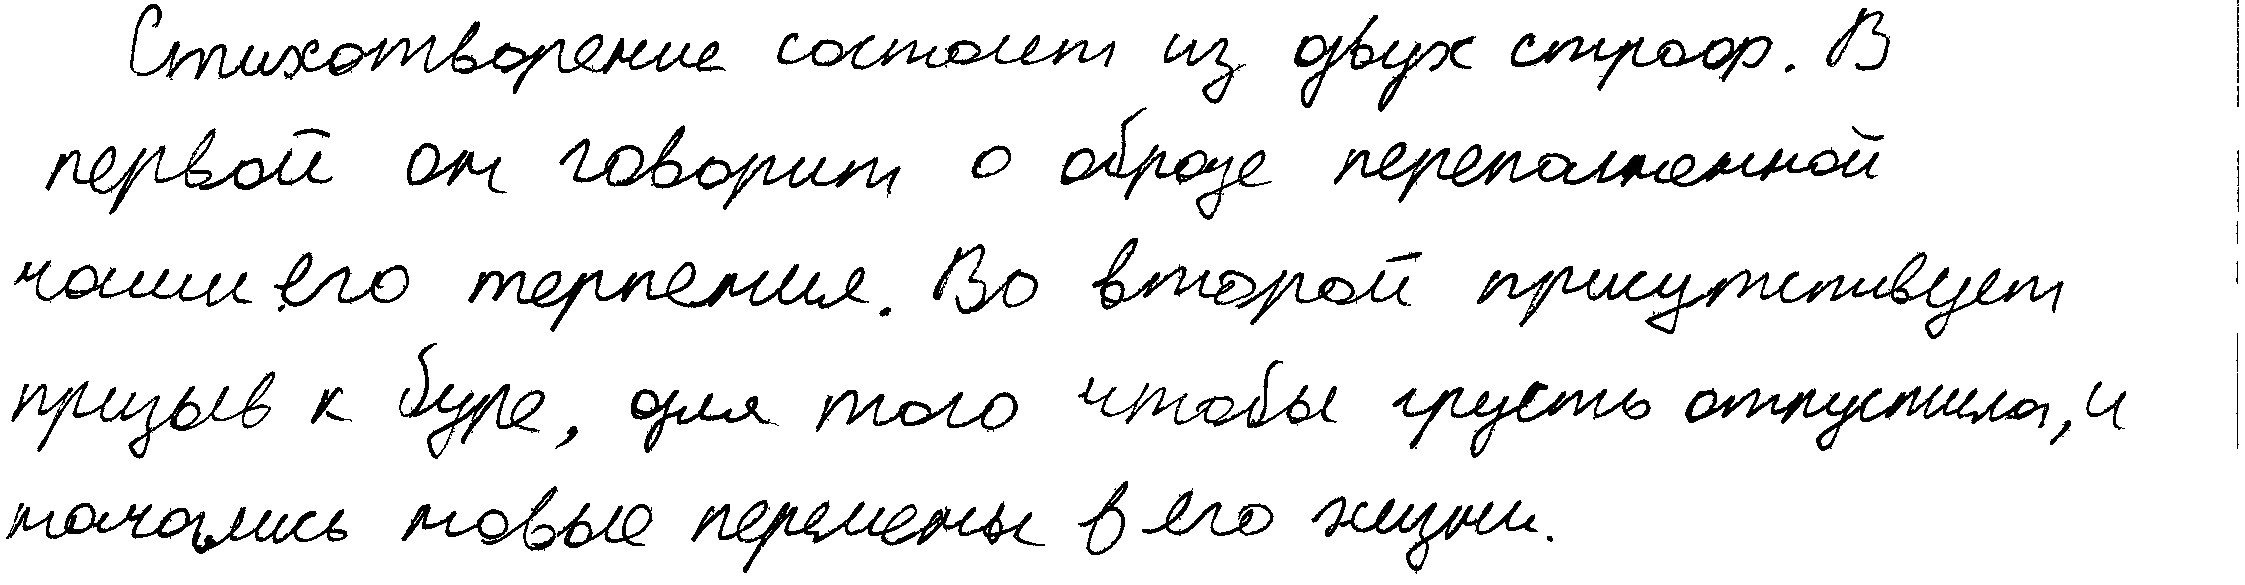 Стихотворение состоит из двух строф. В
первой он говорит о образе переполненной
чаши его терпения. Во второй присутствует
призыв к буре, для того чтобы грусть отпустила, и
начались новые перемены в его жизни.